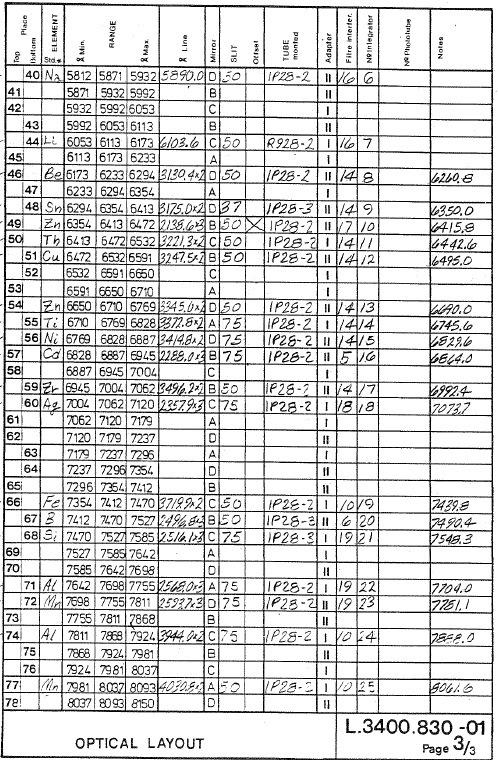 Top Place Bottom Std.* ELEMENT Å Min RANGE Å Max. Å Line Mirror SLIT Offset TUBE monted Adapter Filtre interfer. Nº Integrator Nº Phototube Notes
40 Na 5812 5871 5932 5890.0 D 50 1P28-2 II 16 6
41 5871 5932 5992 B II
42 5932 5992 6053 C I
43 5992 6053 6113 B II
44 Li 6053 6113 6173 6103.6 C 50 R928-2 I 16 7
45 6113 6173 6233 A I
46 Be 6173 6233 6294 3130.4x2 D 50 1P28-2 II 14 8 6260.8
47 6233 6294 6354 A I
48 Sn 6294 6354 6413 3175.0x2 D 37 1P28-3 II 14 9 6350.0
49 Zn 6354 6413 6472 2138.6x3 B 50 X 1P28-2 II 17 10 6415.8
50 Th 6413 6472 6532 3221.3x2 C 50 1P28-2 I 14 11 6442.6
51 Cu 6472 6532 6591 3247.5x2 B 50 1P28-2 II 14 12 6495.0
52 6532 6591 6650 C I
53 6591 6650 6710 A I
54 Zn 6650 6710 6769 3345.0x2 D 50 1P28-2 II 14 13 6690.0
55 Ti 6710 6769 6828 3372.8x2 A 75 1P28-2 I 14 14 6745.6
56 Ni 6769 6828 6887 3414.8x2 D 75 1P28-2 II 14 15 6829.6
57 Cd 6828 6887 6945 2288.0x3 B 75 1P28-2 II 5 16 6864.0
58 6887 6945 7004 C I
59 Zr 6945 7004 7062 3496.2x2 B 50 1P28-2 II 14 17 6992.4
60 Ag 7004 7062 7120 2357.9x3 C 75 1P28-2 I 18 18 7073.7
61 7062 7120 7179 A I
62 7120 7179 7237 D II
63 7179 7237 7296 A I
64 7237 7296 7354 D II
65 7296 7354 7412 B II
66 Fe 7354 7412 7470 3719.9x2 C 50 1P28-2 I 10 19 7439.8
67 B 7412 7470 7527 2496.8x3 B 50 1P28-3 II 6 20 7490.4
68 Si 7470 7527 7585 2516.1x3 C 75 1P28-3 I 19 21 7548.3
69 7527 7585 7642 A I
70 7585 7642 7698 D II
71 Al 7642 7698 7755 2568.0x3 A 75 1P28-2 I 19 22 7704.0
72 Mn 7698 7755 7811 2593.7x3 D 75 1P28-2 II 19 23 7781.1
73 7755 7811 7868 B II
74 Al 7811 7868 7924 3944.0x2 C 75 1P28-2 I 10 24 7888.0
75 7868 7924 7981 B II
76 7924 7981 8037 C I
77 Mn 7981 8037 8093 4030.8x2 A 50 1P28-2 I 10 25 8061.6
78 8037 8093 8150 D II
OPTICAL LAYOUT L.3400.830 -01
Page 3/3